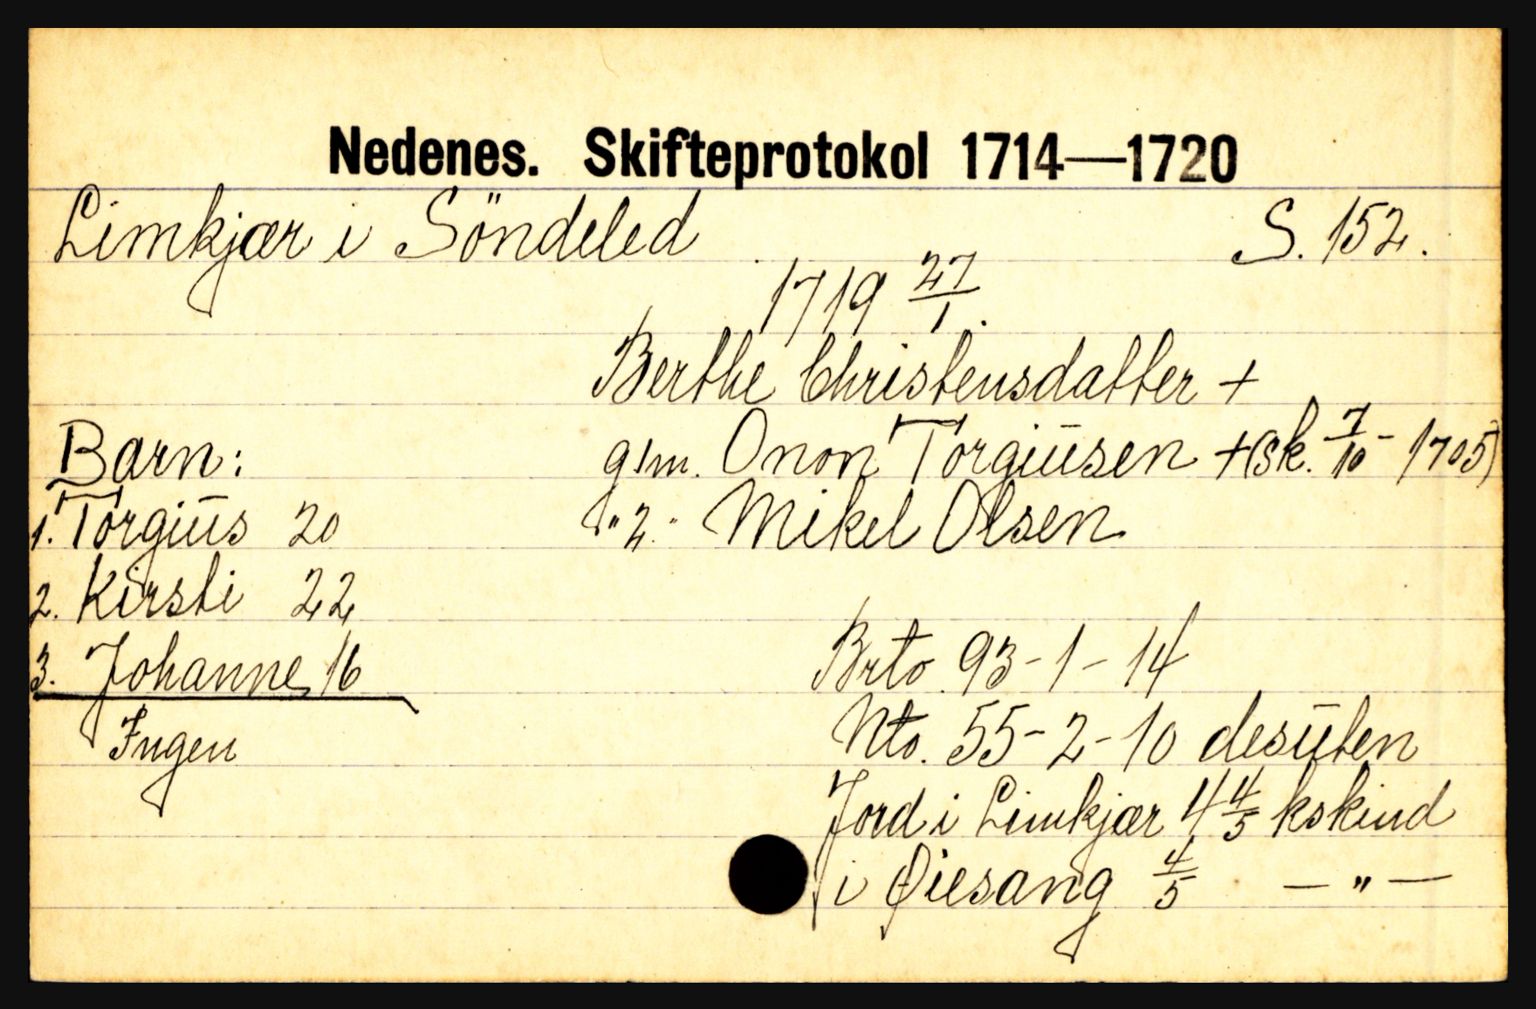 Nedenes. Skifteprotokol 1714—1720
Limkjær i Söndeled S. 152.
1719 27/1.
Berthe Christensdatter +
Barn: g1m. Onon Torgiusen + (sk. 7/10 - 1705)
1. Torgius 20 " 2. " Mikel Olsen
2. Kirsti 22
3. Johanne 16 Brto. 93-1-14
Ingen Nto. 55-2-10 desuten
Jord i Limkjær 4 4/5 kskind
i Øiesang 4/5 — " —